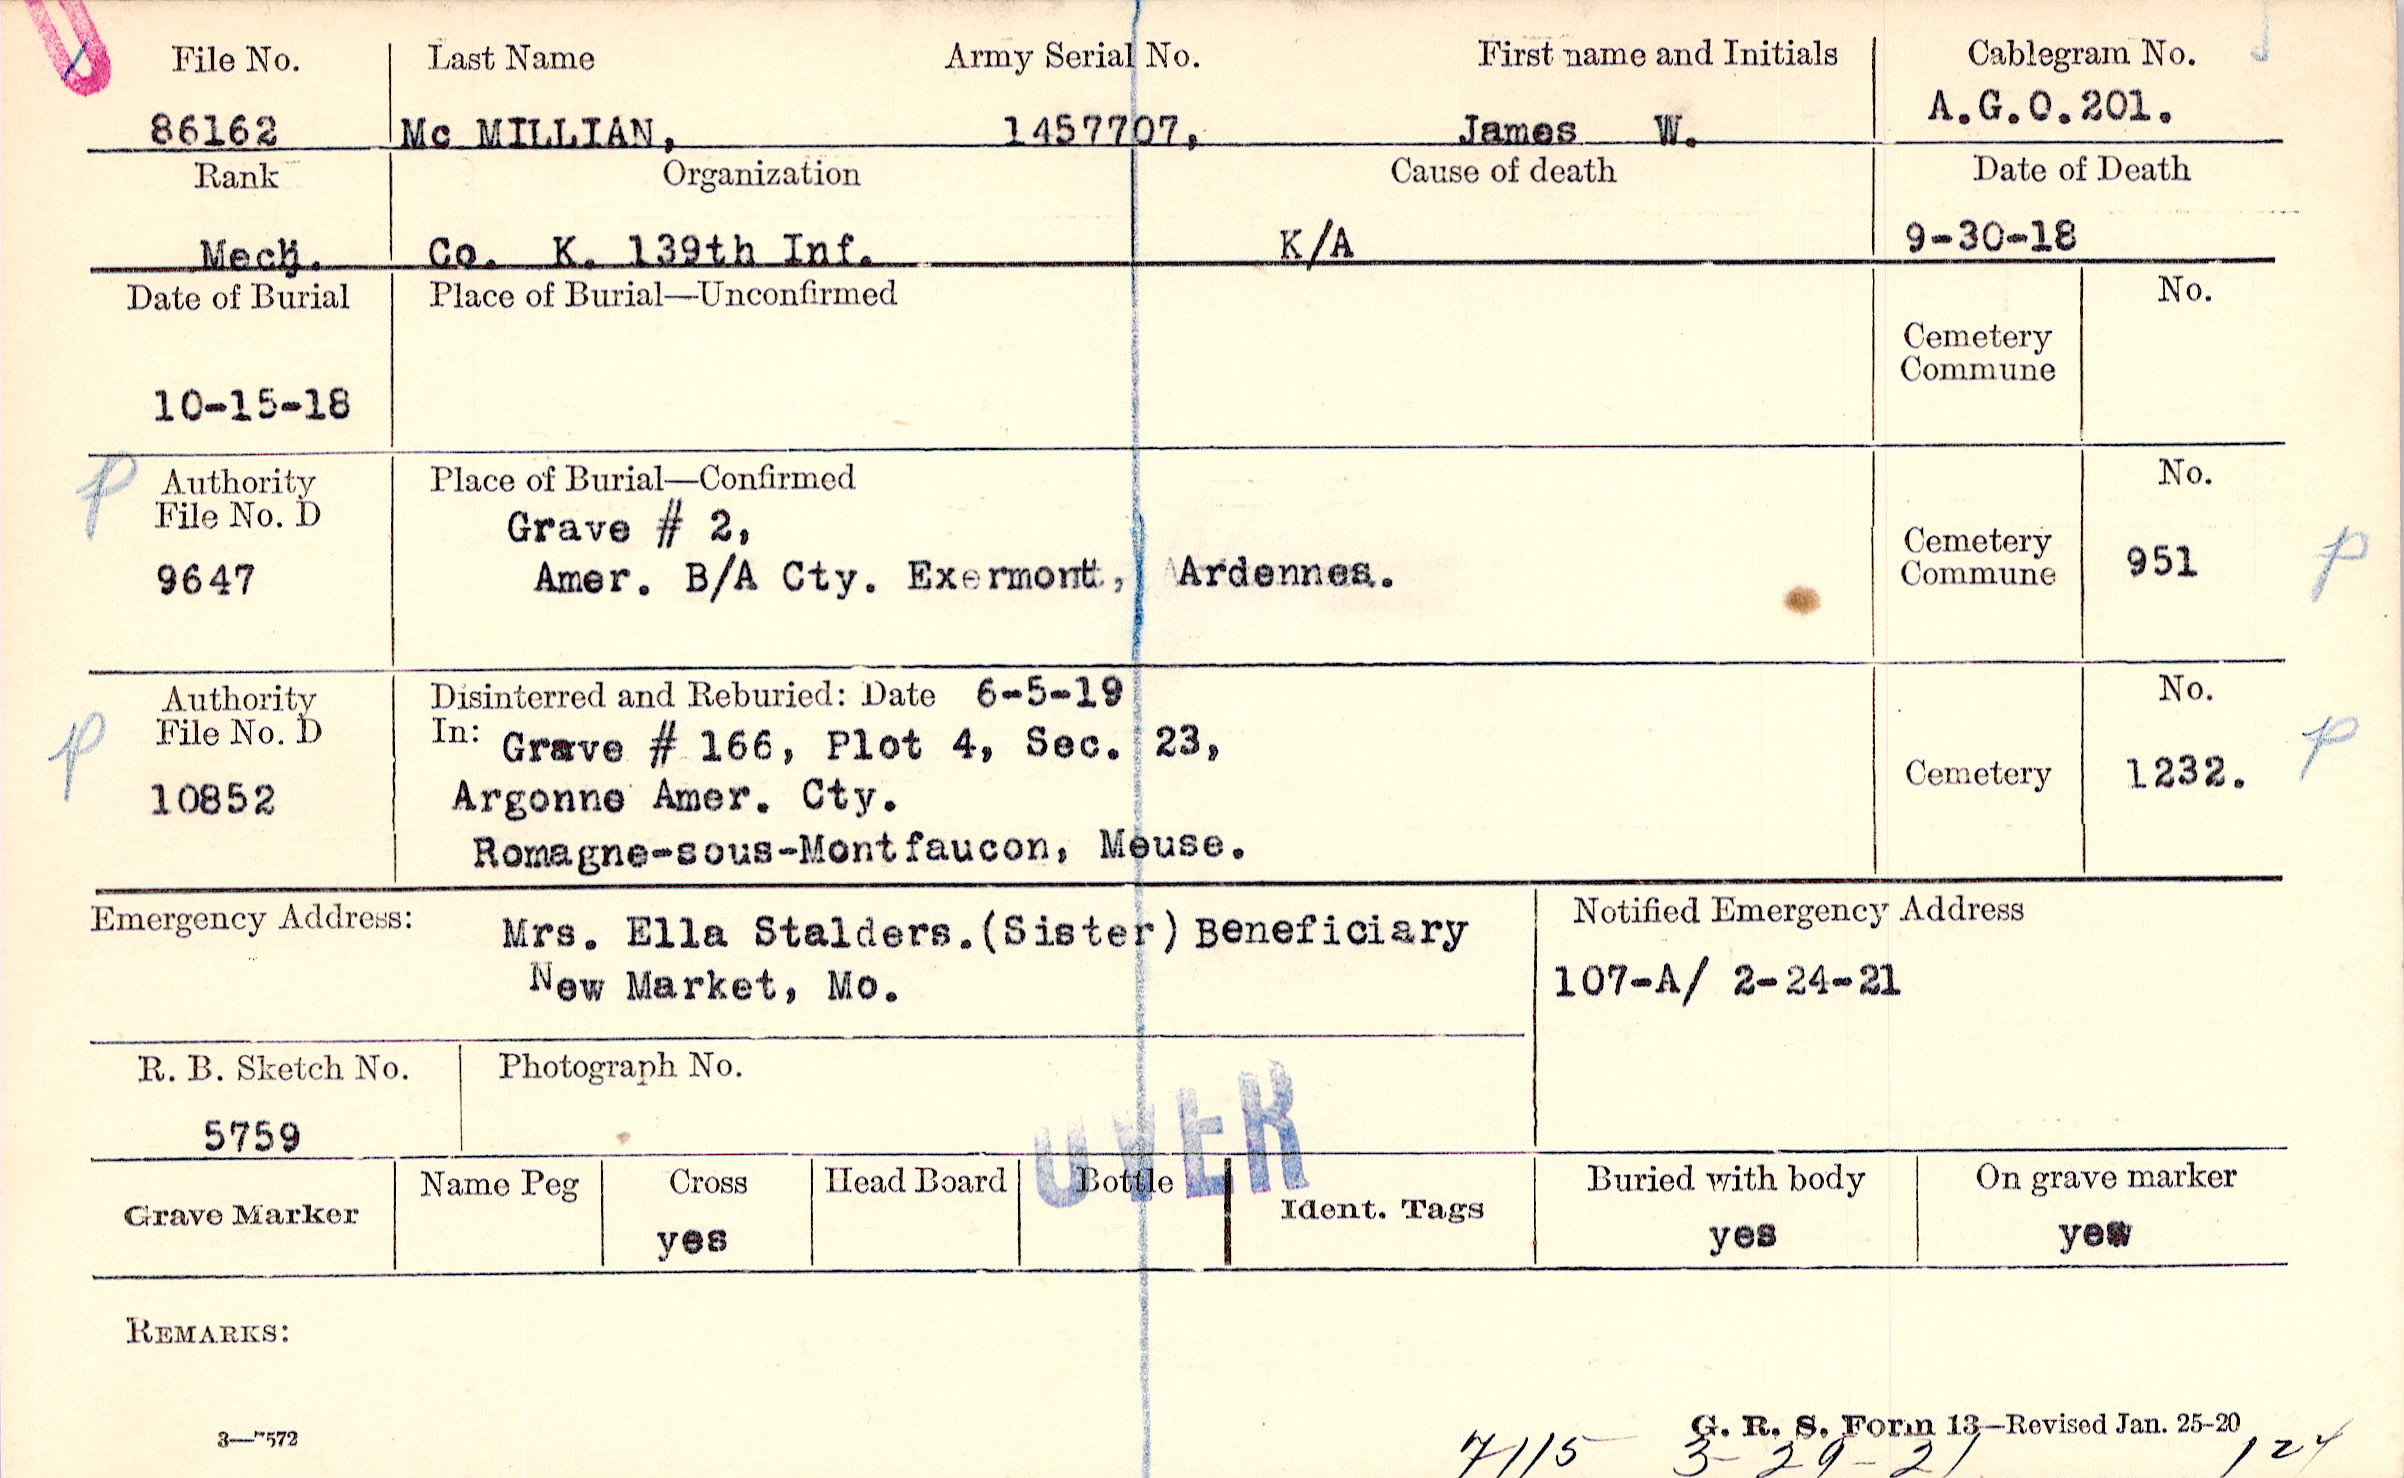 File No. Last Name Army Serial No. First name and Initials Cablegram No.
86162 Mc MILLIAN, 1457707, James W. A.G.O.201.
Rank Organization Cause of death Date of Death
Mech. Co. K. 139th Inf. K/A 9-30-18
Date of Burial Place of Burial—Unconfirmed No.
Cemetery
Commune
10-15-18
Authority Place of Burial—Confirmed No.
File No. D Grave # 2, Cemetery
9647 Amer. B/A Cty. Exermont, Ardennes. Commune 951
Authority Disinterred and Reburied: Date 6-5-19 No.
File No. D In: Grave # 166, Plot 4, Sec. 23,
10852 Argonne Amer. Cty. Cemetery 1232.
Romagne-sous-Montfaucon, Meuse.
Emergency Address: Mrs. Ella Stalders.(Sister) Beneficiary Notified Emergency Address
New Market, Mo. 107-A/ 2-24-21
R. B. Sketch No. Photograph No.
5759
OVER
Grave Marker Name Peg Cross Head Board Bottle Ident. Tags Buried with body On grave marker
yes yes yes
REMARKS:
3—7572 G. R. S. Form 13—Revised Jan. 25-20
7115 3-29-21 124